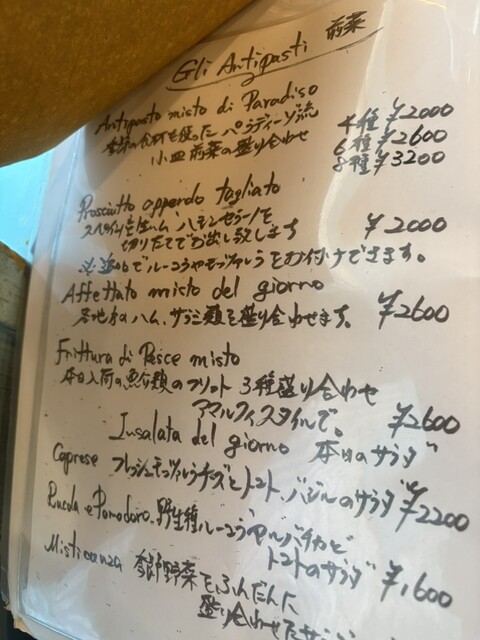 Gli Antipasti 前菜
Antipasto misto di Paradiso
季節の食材を使った パラディーゾ流 4種 ¥2000
小皿前菜の盛り合わせ 6種 ¥2600
8種 ¥3200
Prosciutto appendo tagliato
スペイン産生ハム、ハモンセラーノを
切りたてでお出し致します ¥2000
※追加でルーコラやモッツァレラをお付けできます。
Affettato misto del giorno
各地方のハム、サラミ類を盛り合わせます。 ¥2600
Frittura di Pesce misto
本日入荷の魚介類のフリット 3種盛り合わせ
アマルフィスタイルで。 ¥2600
Insalata del giorno 本日のサラダ
Caprese フレッシュモッツァレラチーズとトマト、バジルのサラダ ¥2200
Rucola e Pomodoro. 野生種ルーコラセルバチカと
トマトのサラダ ¥1600
Misticanza 季節野菜をふんだんに
盛り合わせたサラダ